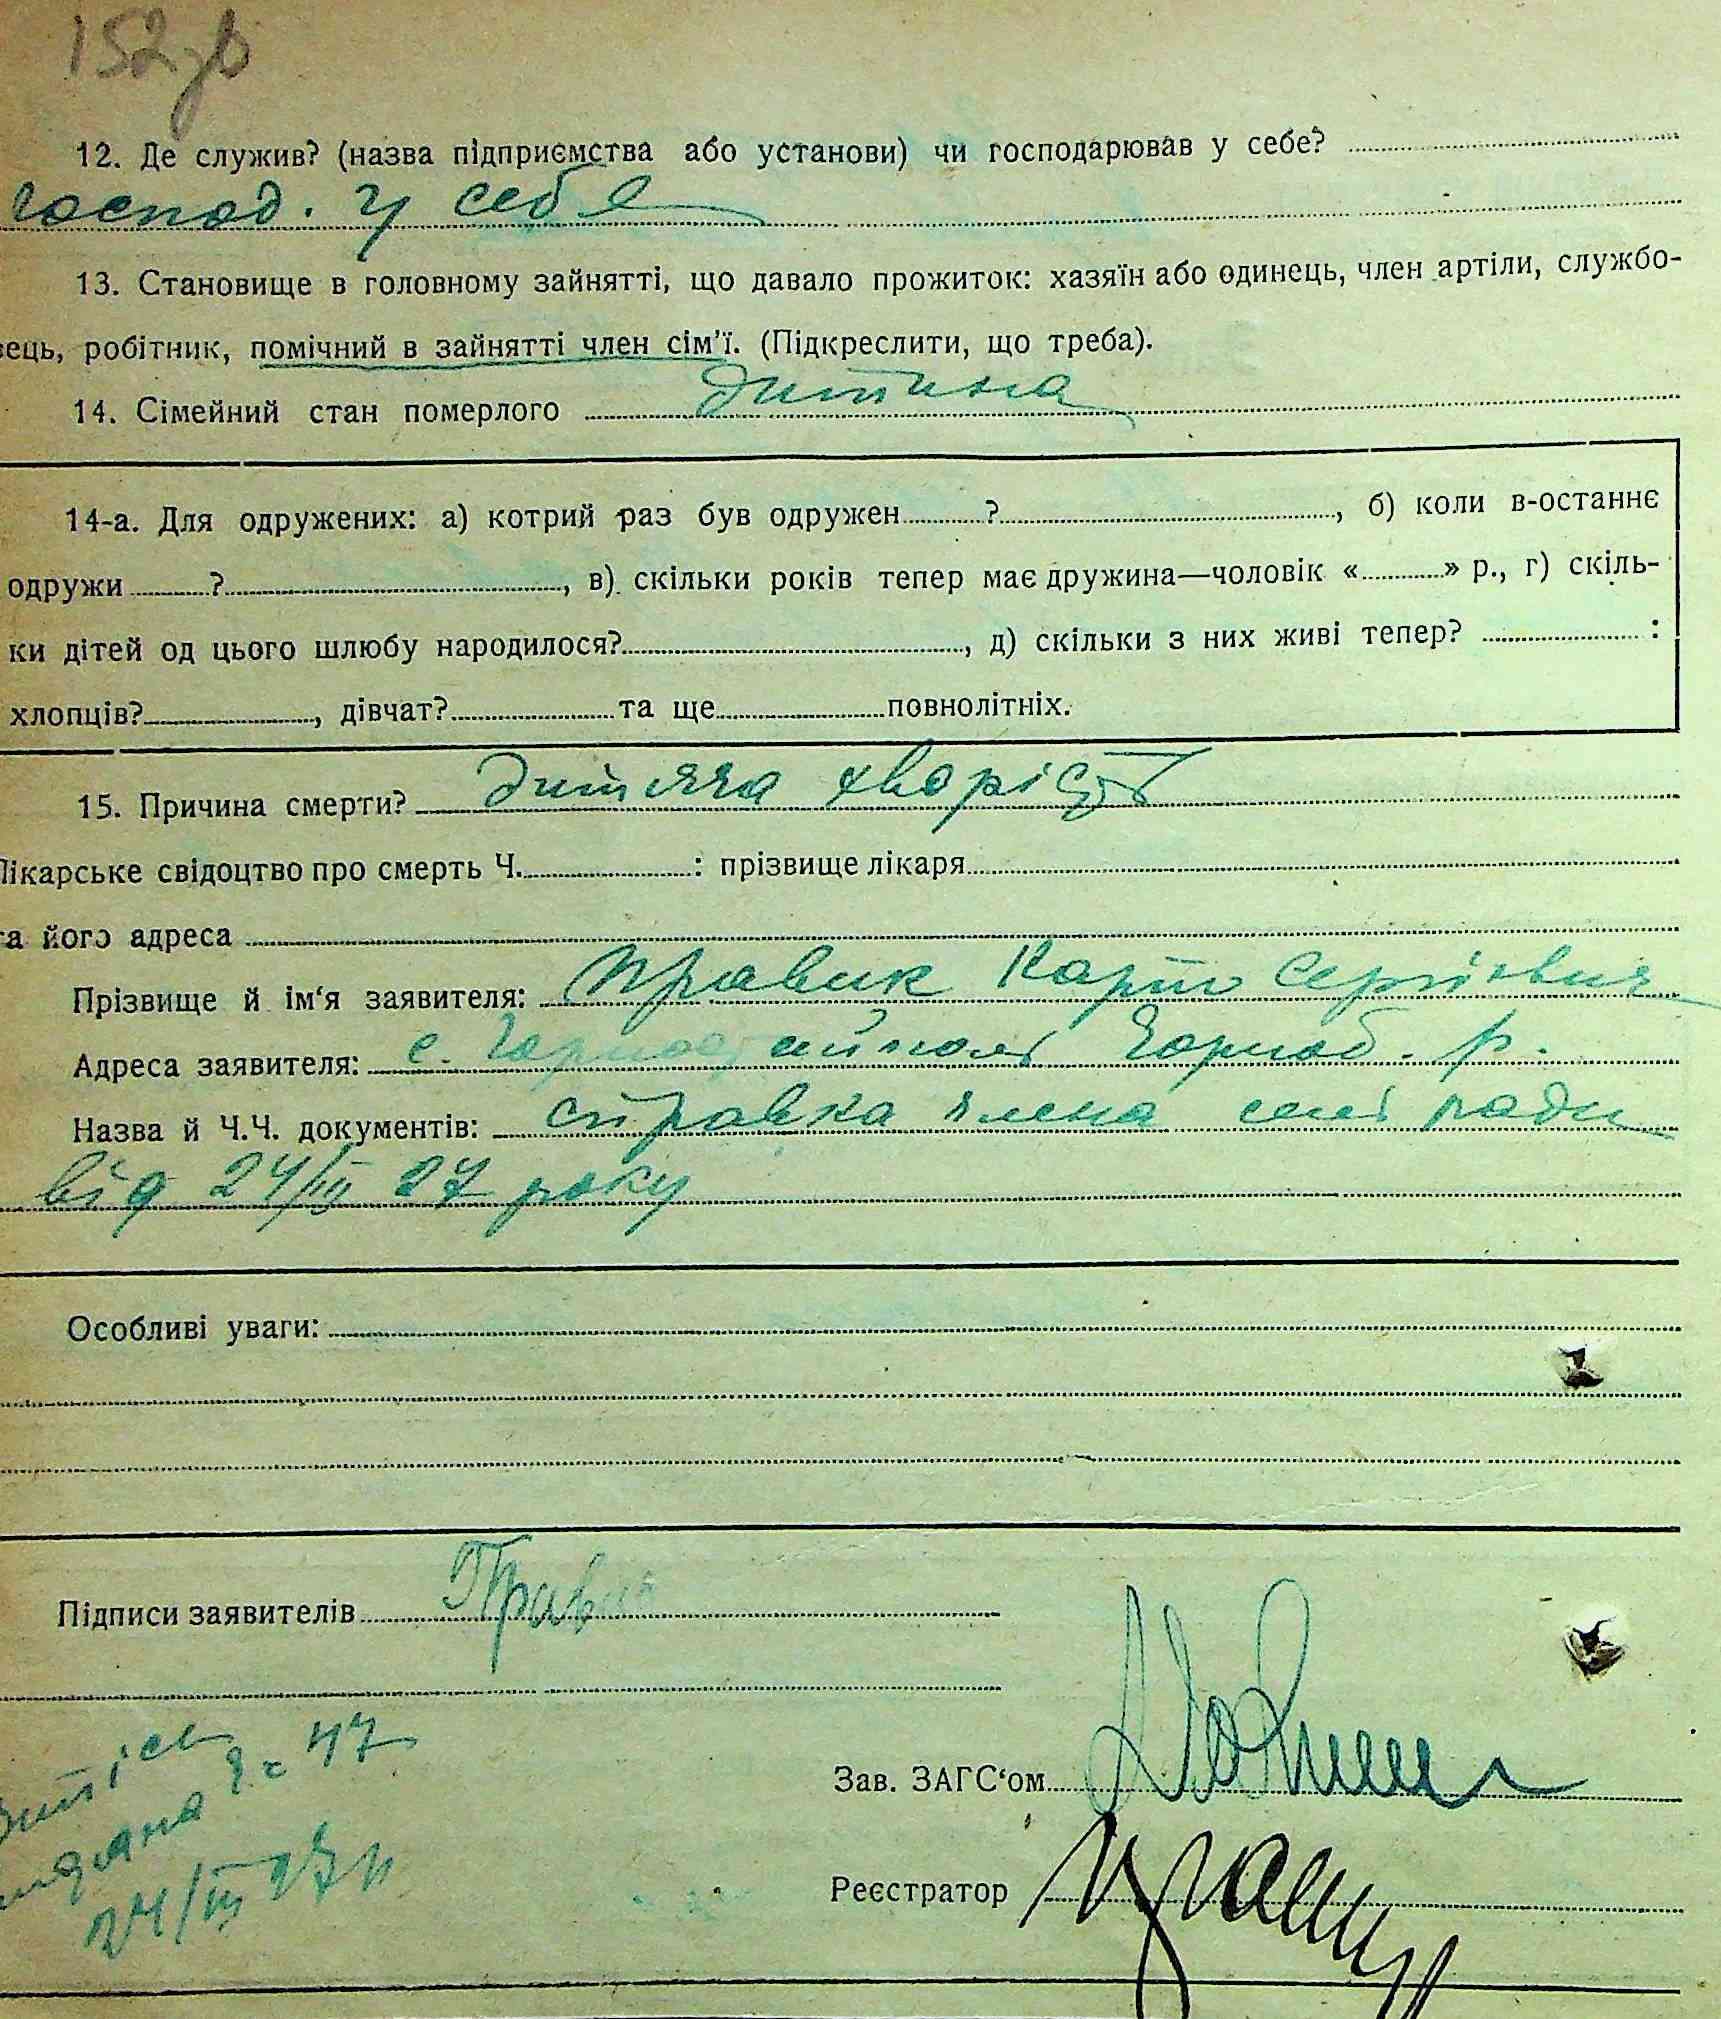 152зв
12. Де служив? (назва підприємства або установи) чи господарював у себе?
господ. у себе
13. Становище в головному зайнятті, що давало прожиток: хазяїн або одинець, член артіли, службо-
вець, робітник, помічний в зайнятті член сім'ї. (Підкреслити, що треба).
14. Сімейний стан померлого дитина
14-а. Для одружених: а) котрий раз був одружен ? , б) коли в-останнє
одружи ? , в) скільки років тепер має дружина—чоловік « » р., г) скіль-
ки дітей од цього шлюбу народилося? , д) скільки з них живі тепер? :
хлопців? , дівчат? та ще повнолітніх.
15. Причина смерти? дитяча хворість
Лікарське свідоцтво про смерть Ч. : прізвище лікаря
та його адреса
Прізвище й ім'я заявителя: Правик Карпо Сергієвич
Адреса заявителя: с. Горностайполь Чорноб. р.
Назва й Ч.Ч. документів: справка члена сел ради
від 24/III 27 року
Особливі уваги:
Підписи заявителів Правик
Зав. ЗАГС'ом
Реєстратор
24/III 27 р